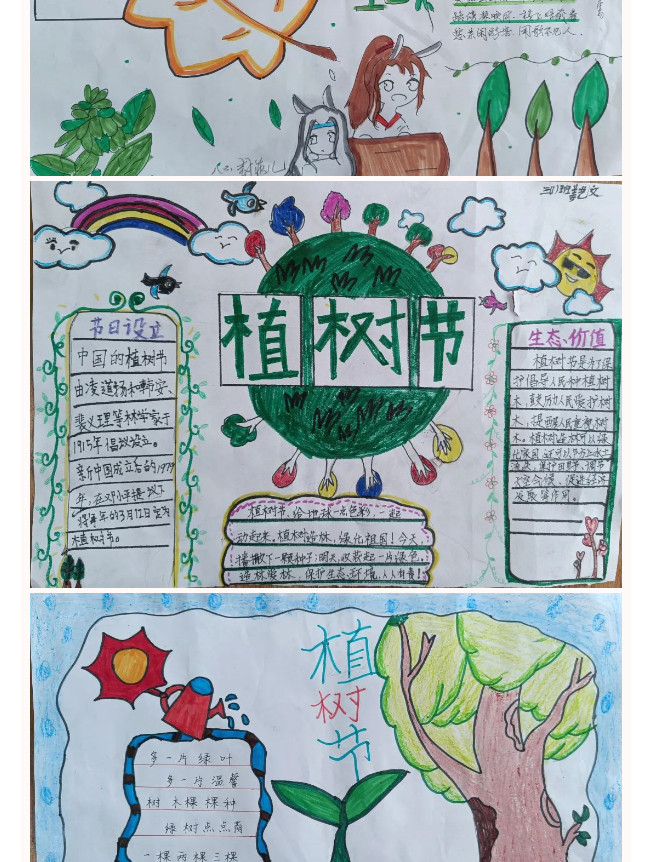 三(1)班
植树节
节日设立
中国的植树节
由凌道扬和韩安、
裴义理等林学家于
1915年倡议设立。
新中国成立后的1979
年，在邓小平提议下
将每年的3月12日定为
植树节。
生态价值
植树节是为了保
护倡导人民种植树
木，鼓励人民爱护树
木，提醒人民重视树
木。植树造林可以绿
植树节，给地球一点色彩，一起
动起来，植树造林，绿化祖国！今天，
播撒下一颗种子；明天，收获起一片绿色，
造林浆林，保护生态环境，人人有责！
植
树
节
多一片绿叶
多一片温馨
树木棵棵种
绿树点点荫
一棵两棵三棵